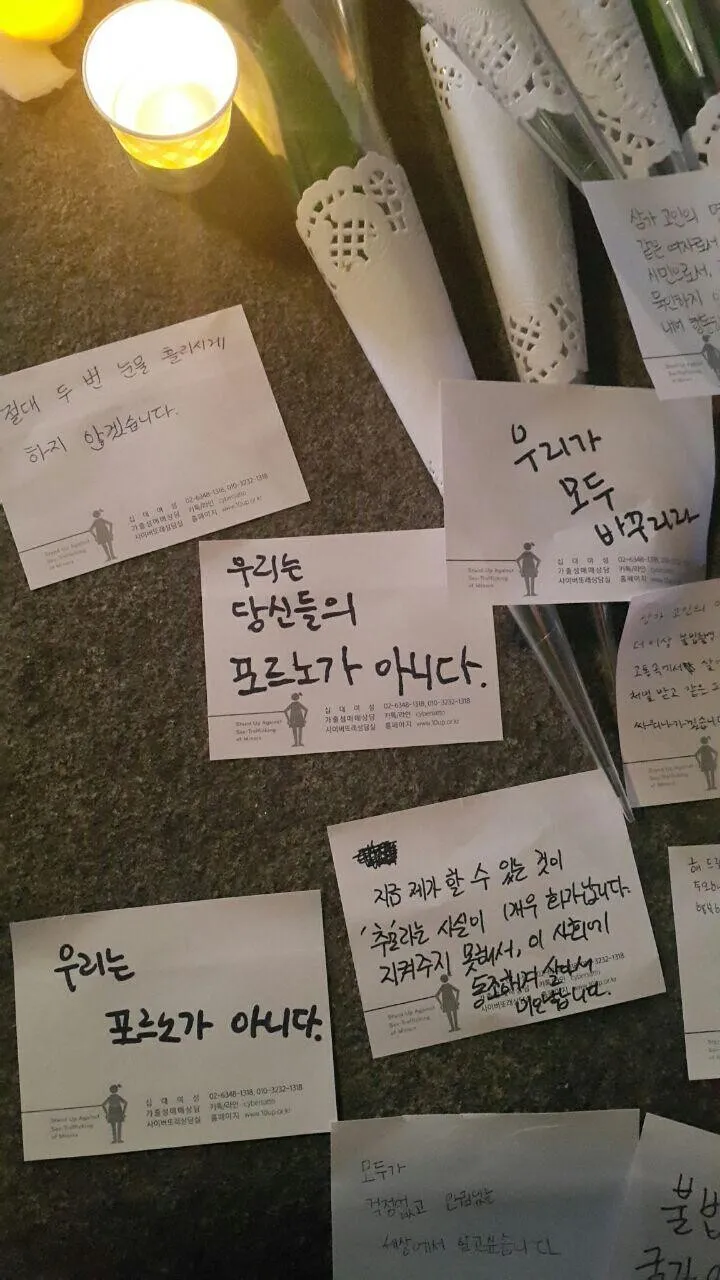 삼가 고인의 명
같은 여자로서
시민으로서,
묵인하지
내며 행동
절대 두 번 눈물 흘리시게
하지 않겠습니다.
Stand Up Against
Sex-Trafficking
of Minors
십 대 여 성
가출성매매상담
사이버또래상담실
02-6348-1318, 010-3232-1318
카톡/라인 cybersatto
홈페이지 www.10up.or.kr
우리가
모두
바꾸리라
Stand Up Against
Sex-Trafficking
of Minors
십 대 여 성
가출성매매상담
사이버또래상담실
02-6348-1318, 010-3232
카톡/라인 cybersatto
홈페이지
우리는
당신들의
포르노가 아니다.
Stand Up Against
Sex-Trafficking
of Minors
십 대 여 성
가출성매매상담
사이버또래상담실
02-6348-1318, 010-3232-1318
카톡/라인 cybersatto
홈페이지 www.10up.or.kr
삼가 고인의
더 이상 불법촬영
고통속에서
처벌 받고 같은
싸워나가겠습니다
Stand Up Against
Sex-Trafficking
of Minors
지금 제가 할 수 있는 것이
'추모'라는 사실이 매우 화가납니다.
지켜주지 못해서, 이 사회에
동조해져 살아서
미안합니다.
Stand Up Against
Sex-Trafficking
of Minors
우리는
포르노가 아니다.
Stand Up Against
Sex-Trafficking
of Minors
십 대 여 성
가출성매매상담
사이버또래상담실
02-6348-1318, 010-3232-1318
카톡/라인 cybersatto
홈페이지 www.10up.or.kr
모두가
걱정없고
세상에서 살고싶습니다
불법
국가